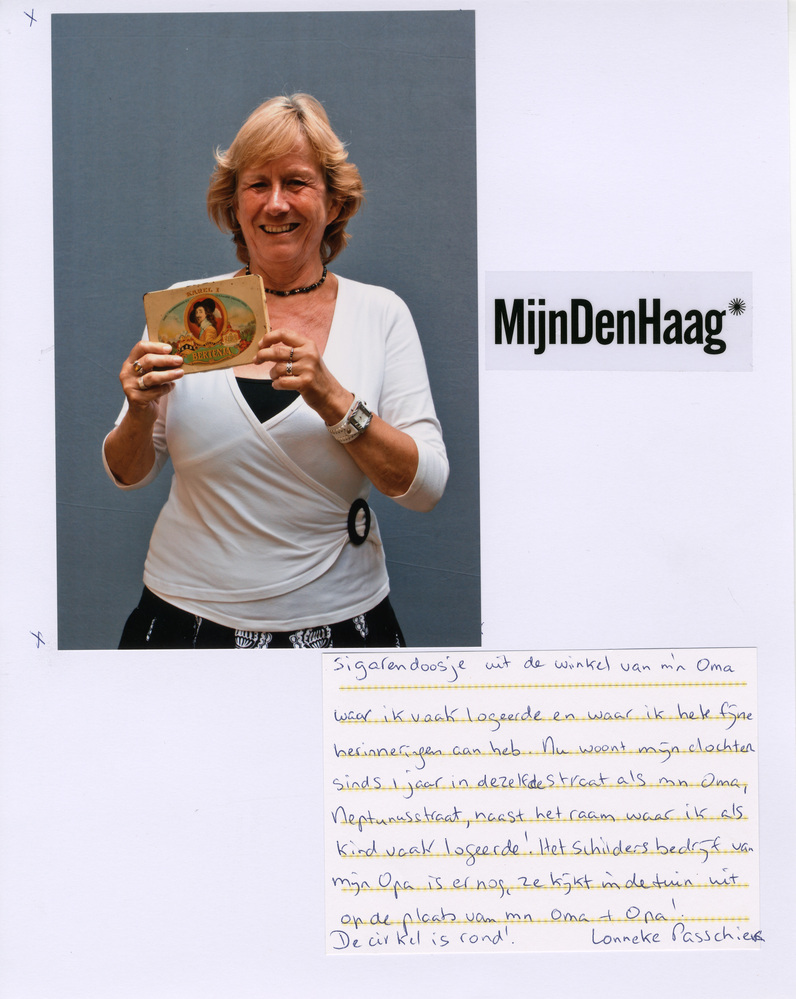 KAREL I
BERTINIA
MijnDenHaag*
Sigarendoosje uit de winkel van m'n Oma
waar ik vaak logeerde en waar ik hele fijne
herinneringen aan heb. Nu woont mijn dochter
sinds 1 jaar in dezelfde straat als mn Oma,
Neptunusstraat, naast het raam waar ik als
kind vaak logeerde! Het schildersbedrijf van
mijn Opa is er nog, ze kijkt in de tuin uit
op de plaats van mn Oma + Opa!
De cirkel is rond! Lonneke Passchier